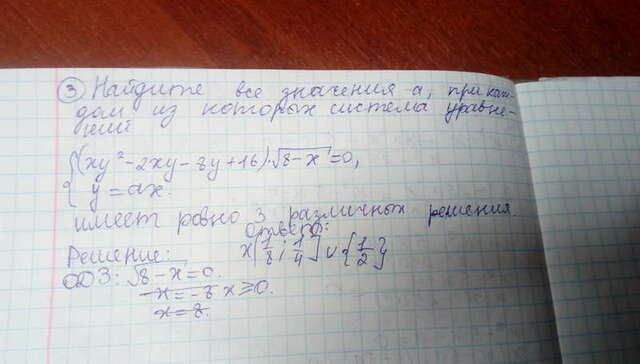 ③ Найдите все значения а, при каж-
дом из которых система уравне-
ний
{(xy²-2xy-8y+16)·√8-x=0,
y=ax.
имеет ровно 3 различных решения.
Ответ:
x[1/8; 1/4]∪{1/2}
Решение:
ОДЗ: √8-x=0.
-x=-8 x≥0.
x=8.